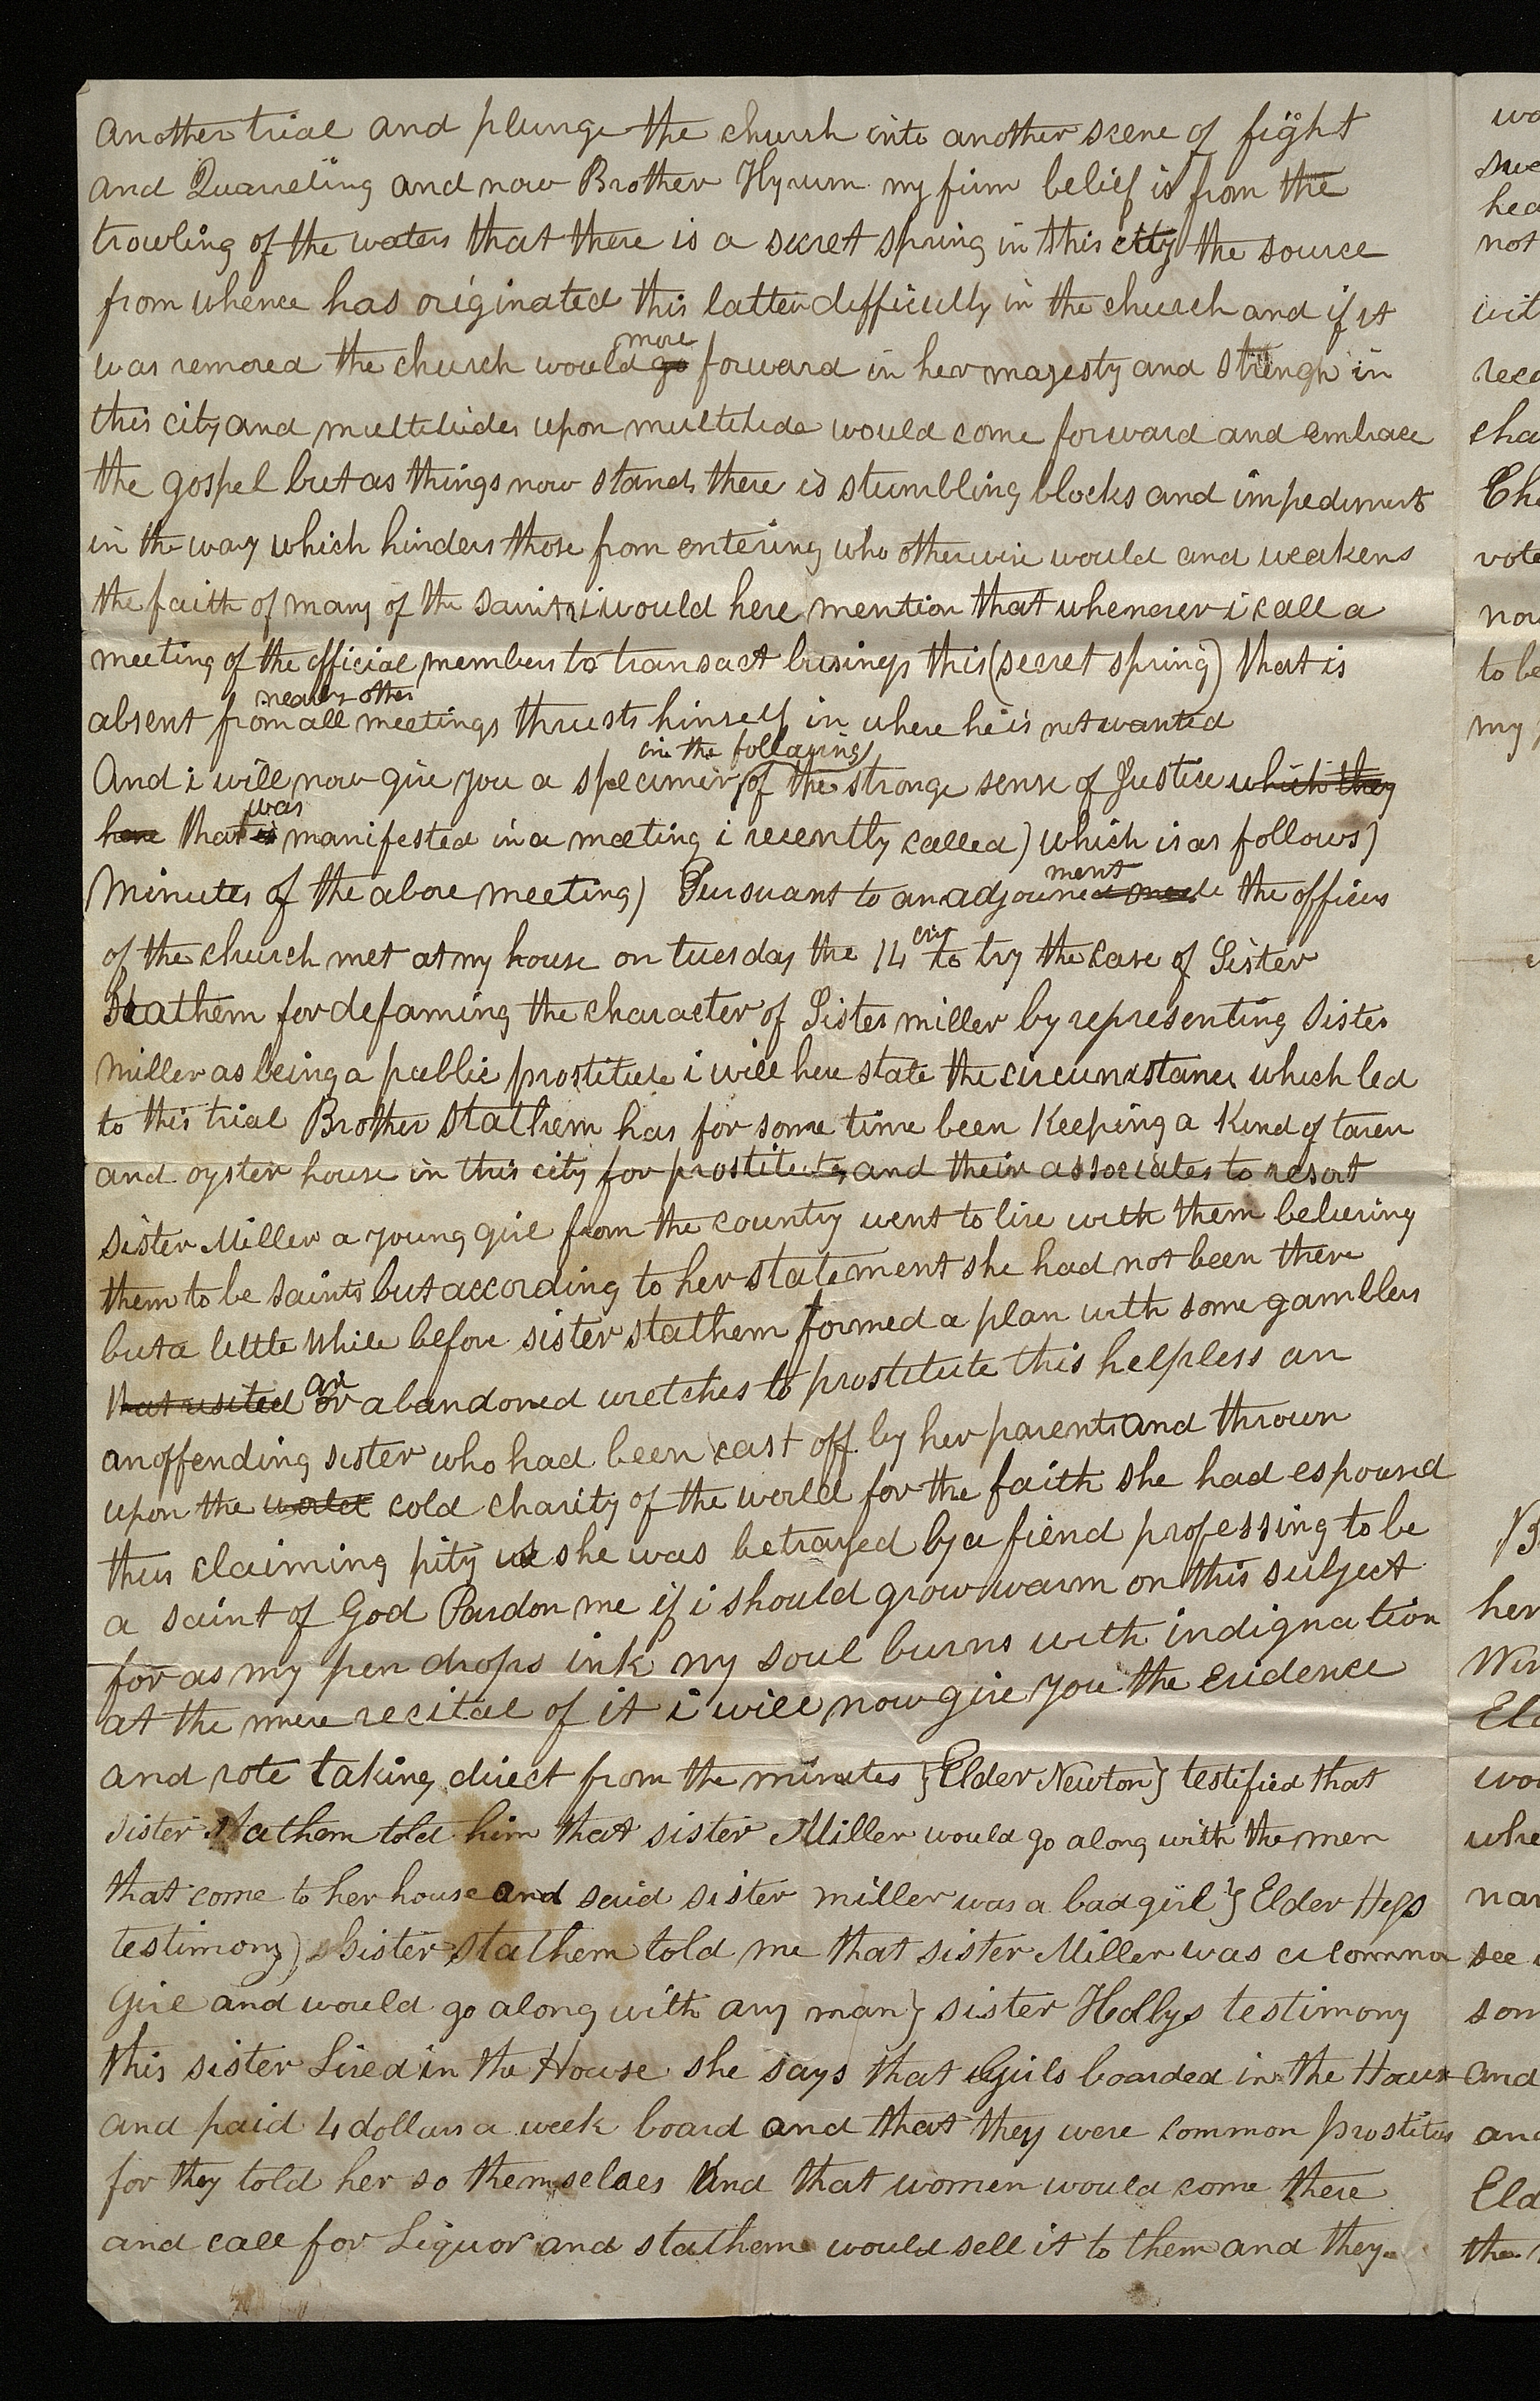 another trial and plunge the church into another scene of fight
and Quarreling and now Brother Hyrum my firm belief is from the
trowling of the waters that there is a secret spring in this city the source
from whence has originated this latter difficully in the church and if it
more
was removed the church would go forward in her majesty and strengh in
this city and multitudes upon multitude would come forward and embrace
the gospel but as things now stands there is stumbling blocks and impediments
in the way which hinders those from entering who otherwise would and weakens
the faith of many of the saints i would here mention that whenever i call a
meeting of the official members to transact business this (secret spring) that is
nearly other
absent from all meetings thrusts himself in where he is not wanted
in the following)
And i will now give you a specimen (of the strong sense of Justice which they
was
have that is manifested in a meeting i recently called) which is as follows)
ment
Minutes of the above meeting) Pursuant to an adjourned the officers
of the church met at my house on tuesday the 14 to try the case of Sister
Stathem for defaming the character of Sister miller by representing Sister
Miller as being a public prostitute i will here state the circumstances which led
to this trial Brother Stathem has for some time been Keeping a Kind of taven
and oyster house in this city for prostitutes and their associates to resort
sister Miller a young girl from the country went to live with them believing
them to be saints but according to her statement she had not been there
but a little while before sister stathem formed a plan with some gamblers
an
that visited or abandoned wretches to prostitute this helpless an
anoffending sister who had been cast off by her parents and thrown
upon the world cold charity of the world for the faith she had espoused
thus claiming pity she was betrayed by a fiend professing to be
a saint of God Pardon me if i should grow warm on this subject
for as my pen drops ink my soul burns with indignation
at the mere recital of it i will now give you the evidence
and vote taking direct from the minutes }Elder Newton} testified that
sister Stathem told him that sister Miller would go along with the men
that come to her house and said sister miller was a bad girl } Elder Heps
testimony) Sister Stathem told me that sister Miller was a common
Girl and would go along with any man} sister Hollys testimony
this sister Lived in the House she says that Girls boarded in the House
and paid 4 dollars a week board and that they were common prostitus
for they told her so themselves And that women would come there
and call for Liquor and stathem would sell it to them and they